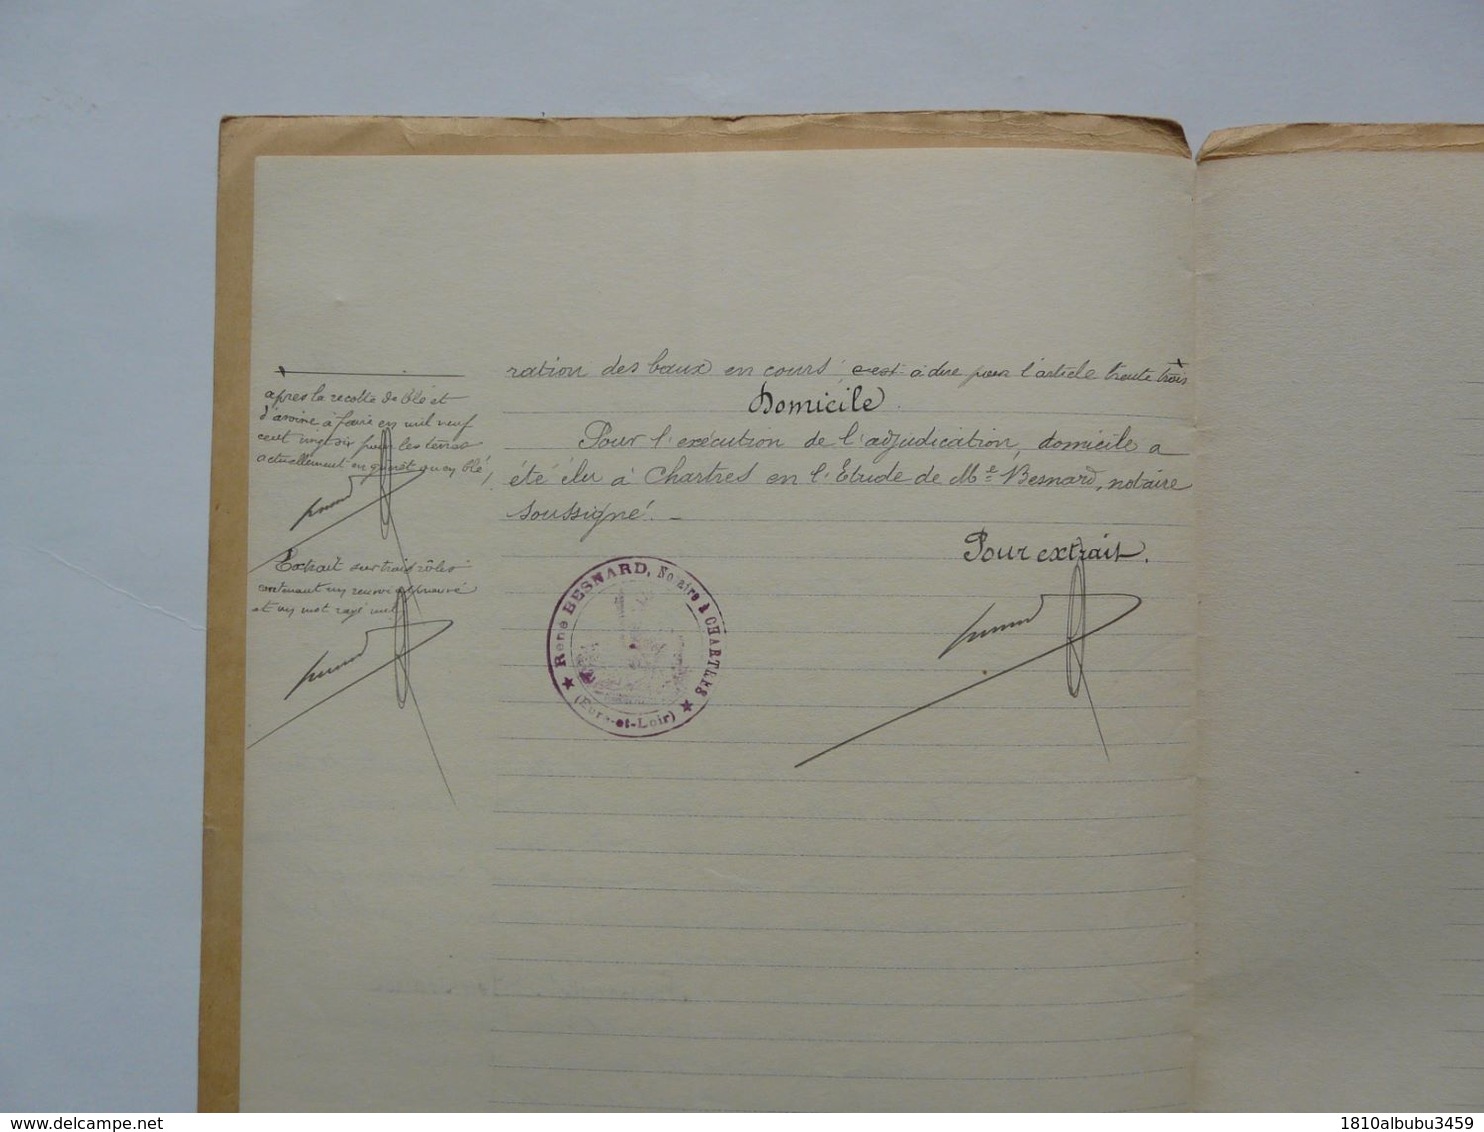 ration des baux en cours, c'est à dire pour l'article trente trois
Domicile.
Pour l'exécution de l'adjudication, domicile a
été élu à Chartres en l'Etude de Me Besnard, notaire
soussigné. -
Pour extrait.
après la récolte de blé et
d'avoine à faire en mil neuf
cent vingt six pour les terres
actuellement en guérêt qu'en blé,
Extrait sur trois rôles
contenant un renvoi approuvé
et un mot rayé nul
★ René BESNARD, Notaire à CHARTRES ★
(Eure-et-Loir)
www.delcampe.net
1810albubu3459